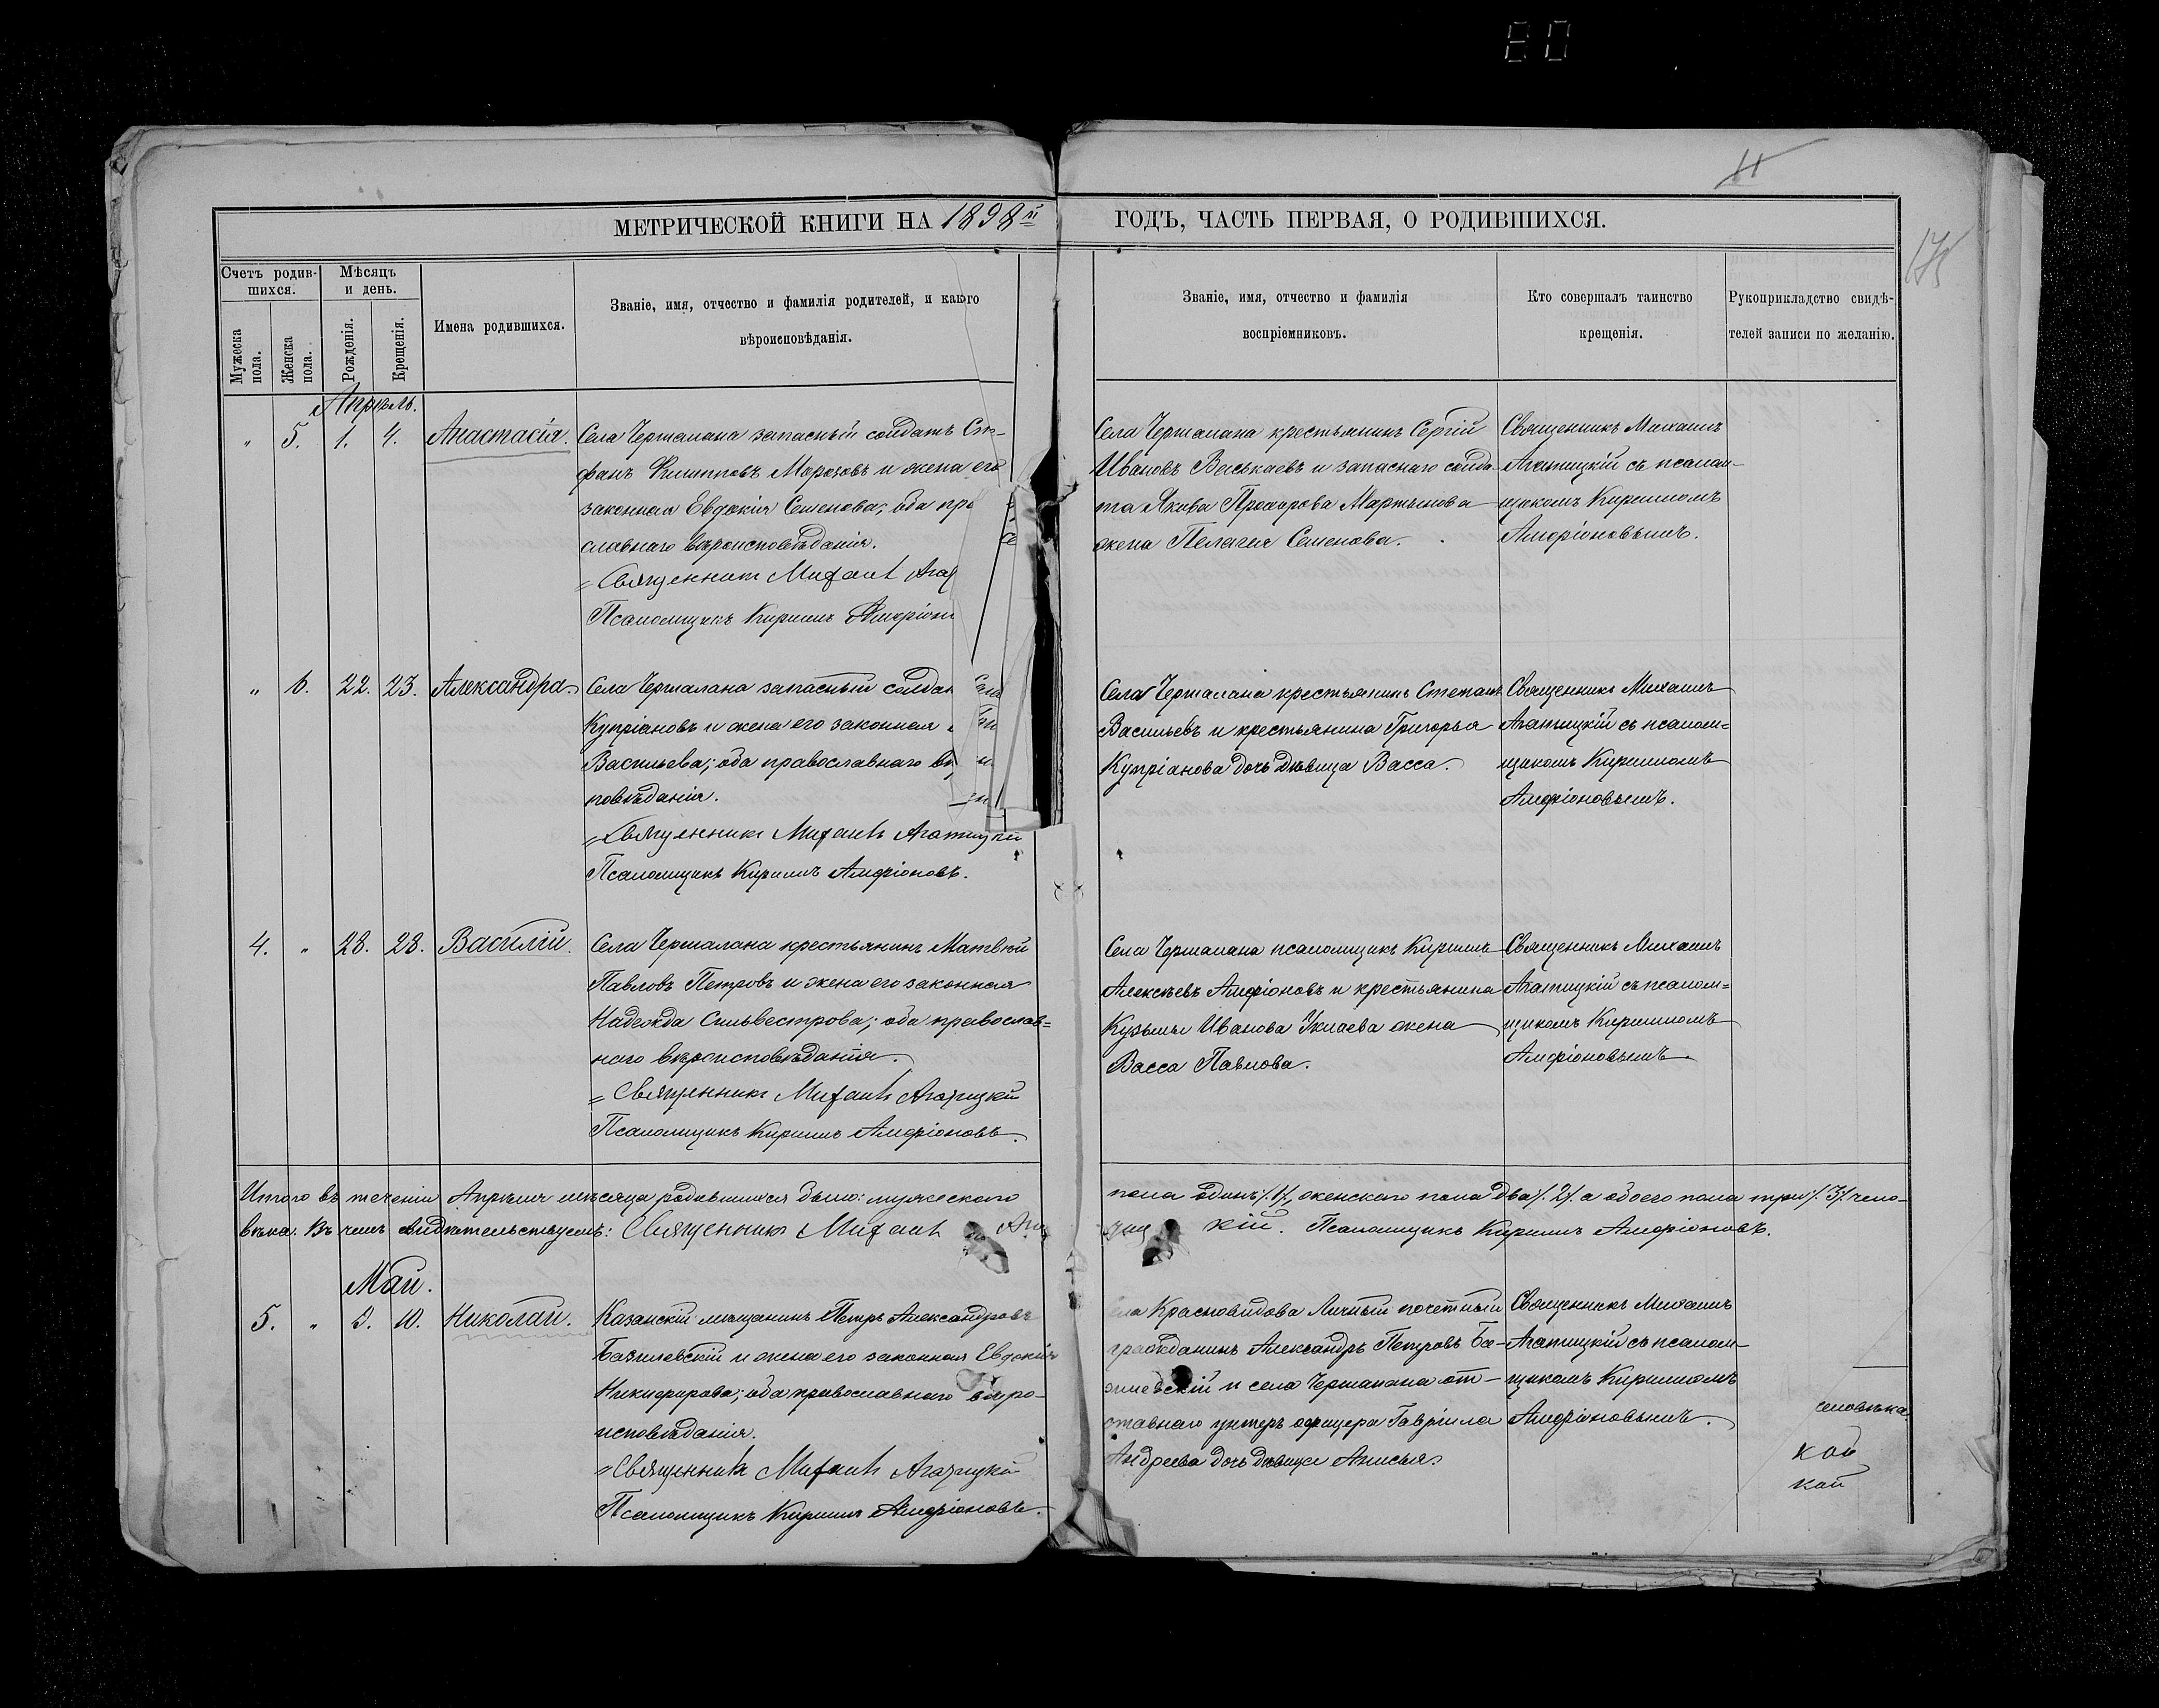 80
МЕТРИЧЕСКОЙ КНИГИ НА 1898й ГОДЪ, ЧАСТЬ ПЕРВАЯ, О РОДИВШИХСЯ.
Счетъ родив-
шихся.
Мужеска пола.
Женска пола.
Мѣсяцъ
и день.
Рожденія.
Крещенія.
Имена родившихся.
Званіе, имя, отчество и фамилія родителей, и какого
вѣроисповѣданія.
Званіе, имя, отчество и фамилія
воспріемниковъ.
Кто совершалъ таинство
крещенія.
Рукоприкладство свидѣ-
телей записи по желанію.
Апрѣль.
" 5. 1. 4. Анастасія.
Села Чермалана запасный солдатъ Сте-
фанъ Филипповъ Морозовъ и жена его
законная Евдокія Семенова; оба пра
славнаго вѣроисповѣданія.
Священникъ Михаилъ Ага
Псаломщикъ Кириллъ Амфріон
Села Чермалана крестьянинъ Сергій
Ивановъ Васькаевъ и запаснаго солда-
та Якова Прохорова Мартынова
жена Пелагея Семенова.
Священникъ Михаилъ
Агатицкій съ псалом-
щикомъ Кирилломъ
Амфріоновымъ.
" 6. 22. 23. Александра.
Села Чермалана запасный солдат
Купріановъ и жена его законная
Васильева; оба православнаго вѣ
повѣданія.
Священникъ Михаилъ Агатицкій
Псаломщикъ Кириллъ Амфріоновъ.
Села Чермалана крестьянинъ Степанъ
Васильевъ и крестьянина Григорья
Купріанова дочь дѣвица Васса.
Священникъ Михаилъ
Агатицкій съ псалом=
щикомъ Кирилломъ
Амфріоновымъ.
4. " 28. 28. Василій.
Села Чермалана крестьянинъ Матвѣй
Павловъ Петровъ и жена его законная
Надежда Сильвестрова; оба православ=
наго вѣроисповѣданія.
Священникъ Михаилъ Агатицкій
Псаломщикъ Кириллъ Амфріоновъ.
Села Чермалана псаломщикъ Кириллъ
Алексѣевъ Амфріоновъ и крестьянина
Кузьмы Иванова жена
Васса Павлова.
Священникъ Михаилъ
Агатицкій съ псалом=
щикомъ Кирилломъ
Амфріоновымъ.
Итого въ теченіи Апрѣля мѣсяца родившихся было: мужескаго пола одинъ /.1/, женскаго пола два /.2/. а обоего пола три /.3/. чело-
вѣка. Въ чемъ свидѣтельствуемъ: Священникъ Михаилъ Ага кій. Псаломщикъ Кириллъ Амфріоновъ.
Май.
5. " 9. 10. Николай.
Казанскій мѣщанинъ Петръ Александровъ
Базилевскій и жена его законная Евдокія
Никифорова; оба православнаго вѣро-
исповѣданія.
Священникъ Михаилъ Агатицкій
Псаломщикъ Кириллъ Амфріоновъ.
ла Красновидова Личный почетный
гражданинъ Александръ Петровъ Ба-
зилевскій и села Чермалана от-
ставнаго унтеръ офицера Гавріила
Андреева дочь дѣвица Анисья.
Священникъ Михаилъ
Агатицкій съ псалом-
щикомъ Кирилломъ
Амфріоновымъ.
человѣка.
кой
кой